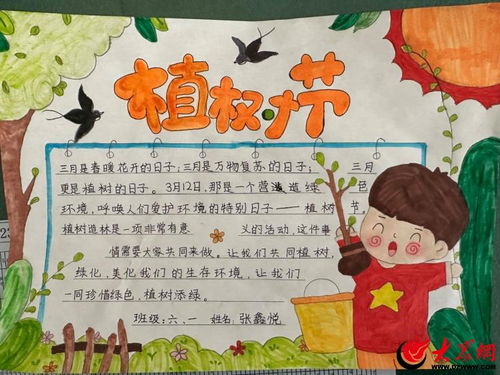 植树节
三月是春暖花开的日子;三月是万物复苏的日子;三月
更是植树的日子。3月12日,那是一个营造绿色
环境,呼唤人们爱护环境的特别日子——植树节,
植树造林是一项非常有意义的活动,这件事
情需要大家共同来做。让我们共同植树,
绿化,美化我们的生存环境,让我们
一同珍惜绿色,植树添绿。
班级:六、一 姓名:张鑫悦
大众网
www.dzwww.com